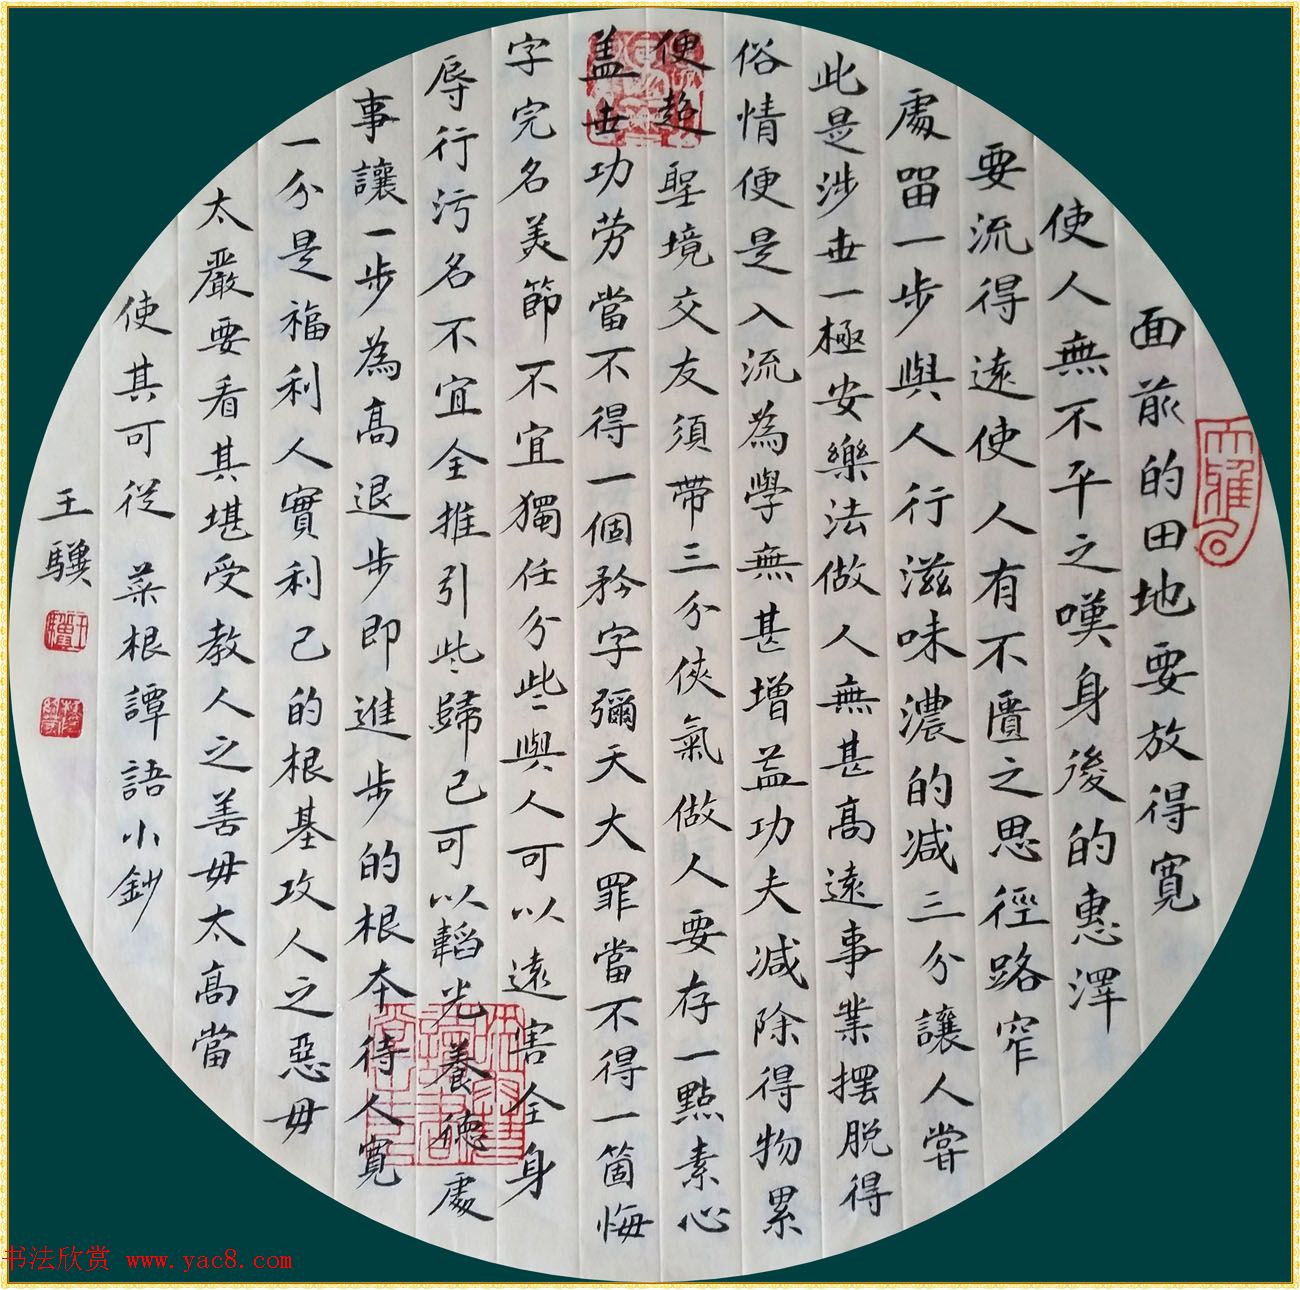 面前的田地要放得寬
使人無不平之嘆身後的惠澤
要流得遠使人有不匱之思徑路窄
處留一步與人行滋味濃的减三分讓人嘗
此是涉世一極安樂法做人無甚高遠事業擺脫得
俗情便是入流為學無甚增益功夫减除得物累
便超聖境交友須帶三分俠氣做人要存一點素心
蓋世功勞當不得一個矜字彌天大罪當不得一箇悔
字完名美節不宜獨任分些與人可以遠害全身
辱行污名不宜全推引些歸己可以韜光養德處
事讓一步為高退步即進步的根本待人寬
一分是福利人實利己的根基攻人之惡毋
太嚴要看其堪受教人之善毋太高當
使其可從 菜根譚語小鈔
王驥
大雅
书法欣赏 www.yac8.com